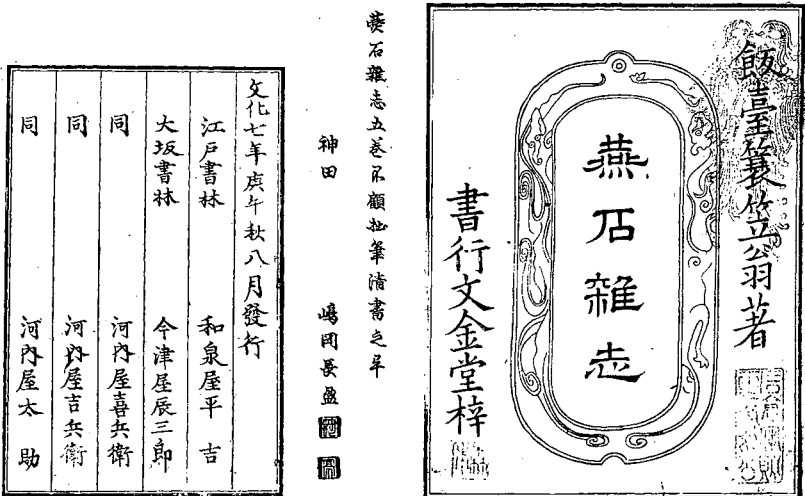 飯臺簑笠翁著
燕石雜志
書行文金堂梓
燕石雜志五巻不顧拙筆清書之畢
神田 嶋岡長盈
文化七年庚午秋八月發行
江戸書林 和泉屋平吉
大坂書林 今津屋辰三郎
同 河内屋喜兵衛
同 河内屋吉兵衛
同 河内屋太助